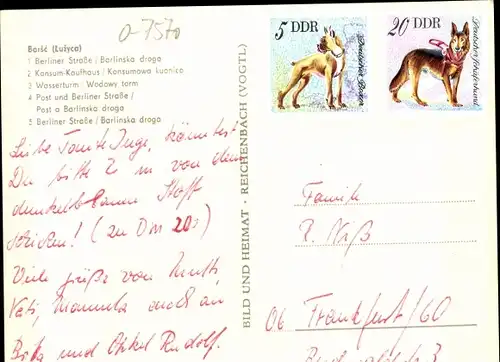 0-7570
Baršć (Łužyca)
1 Berliner Straße / Barlinska droga
2 Konsum-Kaufhaus / Konsumowa kupnica
3 Wasserturm Wodowy torm
4 Post und Berliner Straße /
Post a Barlinska droga
5 Berliner Straße / Barlinska droga
Liebe Tante Inge, könntest
Du bitte 2 m von dem
dunkelblauen Stoff
schicken! (zu DM 20)
Viele Grüße von Mutti
Vati, Manuela auch an
und Onkel Rudolf.
BILD UND HEIMAT · REICHENBACH (VOGTL)
5 DDR
Deutscher Boxer
20 DDR
Deutscher Schäferhund
Familie
R. Niß
06 Frankfurt/60